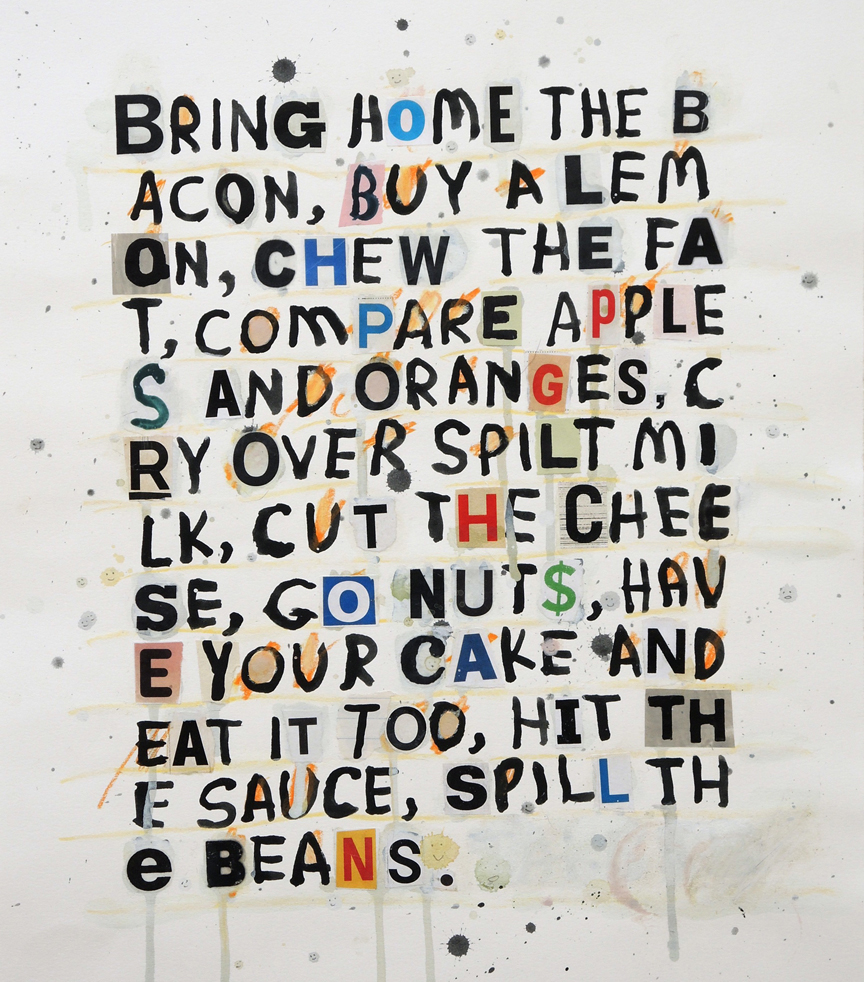 BRING HOME THE B
ACON, BUY A LEM
ON, CHEW THE FA
T, COMPARE APPLE
S AND ORANGES, C
RY OVER SPILT MI
LK, CUT THE CHEE
SE, GO NUT$, HAV
E YOUR CAKE AND
EAT IT TOO, HIT TH
E SAUCE, SPILL TH
e BEANS.